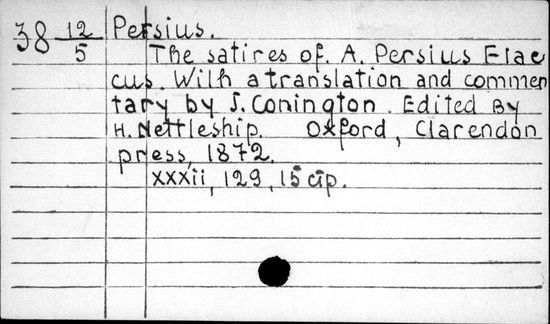 38 12/5 Persius.
The satires of. A. Persius Flac
cus. With a translation and commen
tary by J. Conington. Edited By
H. Nettleship. Oxford, Clarendon
press, 1872.
xxxii, 129, 15 стр.